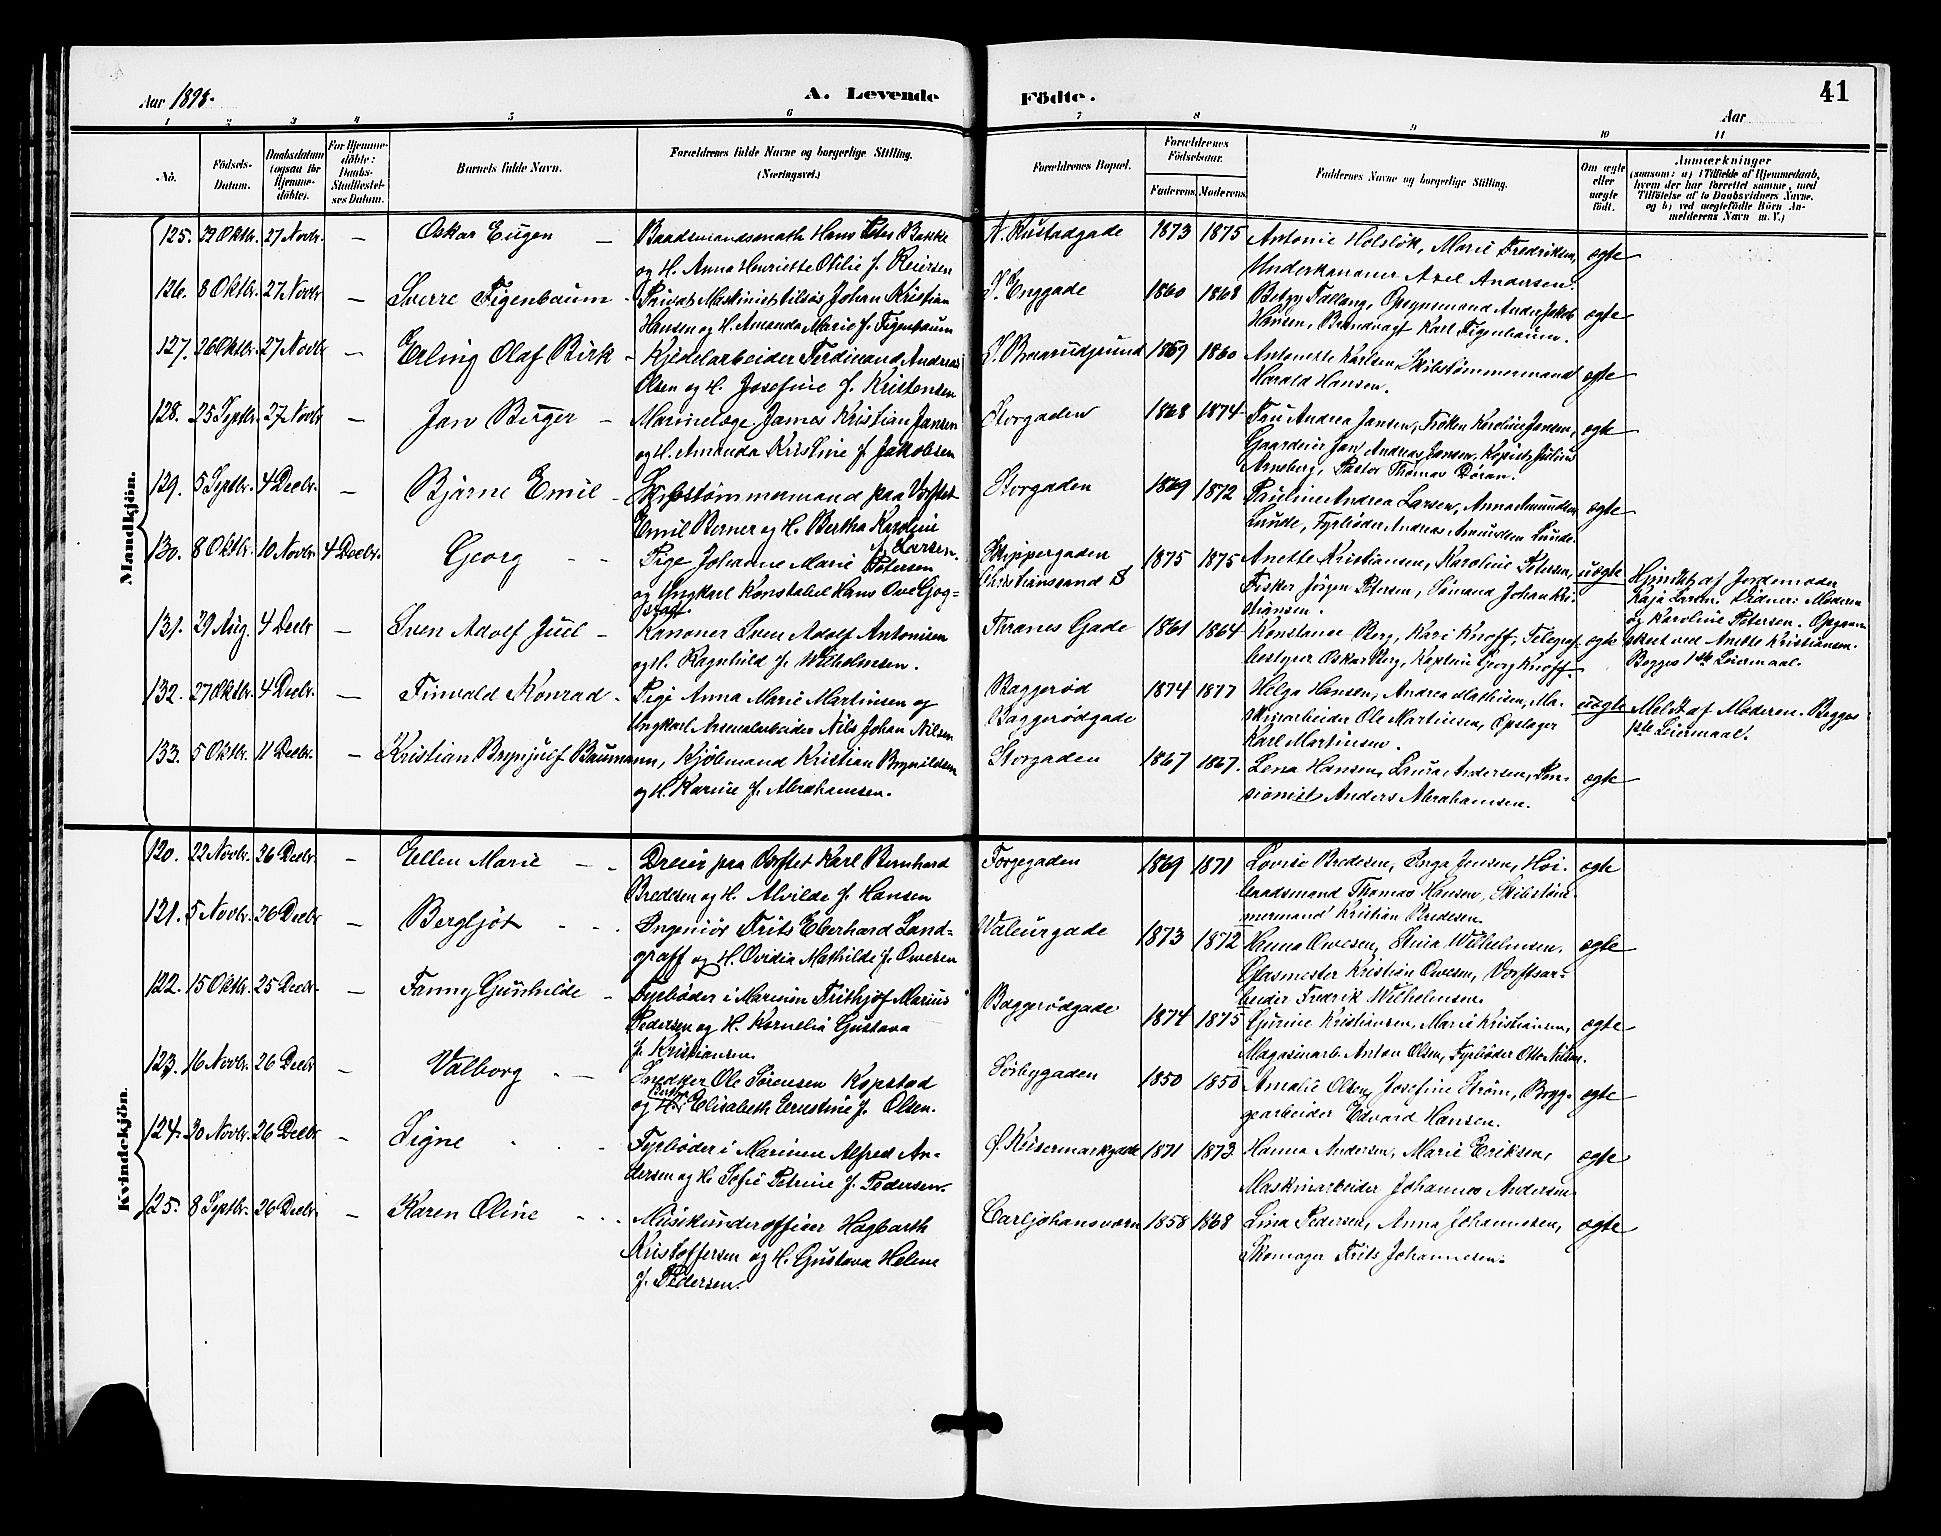 Aar 1898.
A. Levende Födte.
41
Aar
1 2 3 4 5 6 7 8 9 10 11
No.
Födsels-Datum.
Daabsdatum (ogsaa for Hjemme-döbte).
For Hjemme-döbte: Daabs-Stadfæstel-ses Datum.
Barnets fulde Navn.
Forældrenes fulde Navne og borgerlige Stilling. (Næringsvei.)
Forældrenes Bopæl.
Forældrenes Födselsaar.
Faderens. Moderens.
Faddernes Navne og borgerlige Stilling.
Om ægte eller uægte født.
Anmærkninger
(saasom: a) i Tilfælde af Hjemmedaab,
hvem der har forrettet samme, med
Tilföielse af to Daabsvidners Navne,
og b) ved uægtefödte Börn An-
melderens Navn m. V.)
Mandkjön.
125. 22 Oktbr. 27 Novbr. — Oskar Eugen — Baadsmandsmath Hans Peter Bakke
og H. Anna Henriette Otilie f. Reiersen
N. Rustadgade 1873 1875 Antonie Holsløk, Marie Fredriksen,
Underkanoner Axel Andersen.
ægte
126. 8 Oktbr. 27 Novbr — Sverre Figenbaum - Privat Maskinist tilsøs Johan Kristian
Hansen og H. Amanda Marie f. Figenbaum
S. Enggade 1860 1868 Betzy FalLang, Opsynsmand Anders Jakob
Hansen, Brandvagt Karl Figenbaum.
ægte
127. 26 Oktbr. 27 Novbr — Erling Olaf Birk - Kjedelarbeider Ferdinand Andreas
Olsen og H. Josefine f. Kristensen
S. Braarudgrund 1859 1860 Antonette Karlsen, Skibstømmermand
Harald Hansen.
ægte
128. 25 Septbr. 27 Novbr — Jan Birger — Marinelæge James Kristian Jansen
og H. Amanda Kristine f. Jakobsen
Storgaden 1868 1874 Fru Andrea Jansen, Frøken Karoline Jansen,
Gaardeier Jan Andreas Jansen, Kopist Julius
Arnsberg, Pastor Thomas Döran.
ægte
129. 5 Septbr. 4 Decbr. — Bjarne Emil - Skibstømmermand paa Værftet
Emil Berner og H. Bertha Karoline
f. Larsen.
Storgaden 1869 1872 Pauline Andrea Larsen, Anna Amundsen
Lunde, Fyrbøder Andreas Amundsen Lunde.
ægte
130. 8 Oktbr. 10 Novbr. 4 Decbr. Georg - - Pige Johanne Marie Petersen
og Ungkarl Konstabel Hans Ove Gjog-
stad.
Skippergaden
Christianssand S
1875 1875 Anette Kristiansen, Karoline Petersen,
Fisker Jörgen Petersen, Sømand Johan Kri-
stiansen.
uægte Hjmdbt af Jordemoder
Kaja Larsen. Vidner: Moderen
og Karoline Petersen. Opgaven
skeet ved Anette Kristiansen.
Begges 1ste Leiermaal.
131. 29 Aug. 4 Decbr — Sven Adolf Juel - Kanoner Sven Adolf Antonisen
og H. Ragnhild f. Wilhelmsen.
Thranes Gade 1861 1864 Konstance Berg, Kari Knoff, Telegraf-
bestyrer Oskar Berg, Kaptein Georg Knoff.
ægte
132. 27 Oktbr. 4 Decbr. — Finvald Konrad - Pige Anna Marie Martinsen og
Ungkarl Arsenalarbeider Nils Johan Nilsen
Baggerød
Baggerødgade
1874 1877 Helga Hansen, Andrea Mathisen, Ma-
skinarbeider Ole Martinsen, Opslager
Karl Martinsen.
uægte Meldt af Moderen. Begges
1ste Leiermaal.
133. 5 Oktbr. 11 Decbr. — Kristian Brynjulf Baumann, Kjölemand Kristian Brynildsen
og H. Karine f. Abrahamsen.
Storgaden 1867 1867. Lena Hansen, Laura Andersen, Pen-
sionist Anders Abrahamsen.
ægte
Kvindekjön.
120. 22 Novbr. 26 Decbr. - Ellen Marie - - Dreier paa Værftet Karl Bernhard
Bredesen og H. Alvilde f. Hansen
Torgegaden 1869 1871 Lovise Bredesen, Inga Jensen, Høi-
baadsmand Thomas Hansen, Skibstøm-
mermand Kristian Bredesen.
ægte
121. 5 Novbr. 26 Decbr — Bergljót - - - Ingeniör Frits Eberhard Land-
graff og H. Ovidia Mathilde f. Owesen
Valeurgade 1873 1872 Hanna Owesen, Stina Wilhelmsen,
Glasmester Kristian Owesen, Værftsar-
beider Fredrik Wilhelmsen.
ægte
122. 15 Oktbr. 25 Decbr. — Fanny Gunhilde - Fyrbøder i Marinen Frithjof Marius
Pedersen og H. Kornelia Gustava
f. Kristiansen.
Baggerödgade 1874 1875 Gurine Kristiansen, Marie Kristiansen,
Magasinarb. Anton Olsen, Fyrbøder Otto Nilsen.
ægte
123. 16 Novbr. 26 Decbr - Valborg - — Snedker Ole Sørensen Kopstad
og H. Elisabeth Ernestine f. Olsen.
Sørbygaden 1850 1850 Amalie Olsen, Josefine Strøm, Bryg-
gearbeider Edvard Hansen.
ægte
124. 20 Novbr. 26 Decbr - Signe - - - Fyrbøder i Marinen Alfred An-
dersen og H. Sofie Petrine f. Pedersen.
Ø. Keisermarkgade 1871 1873 Hanna Andersen, Marie Eriksen,
Maskinarbeider Johannes Andersen
ægte
125. 8 Septbr. 26 Decbr. - Karen Oline - - - Musikunderofficer Hagbarth
Kristoffersen og H. Gustava Helene
f. Pedersen.
Carljohansværn 1858 1868 Lina Pedersen, Anna Johannesen,
Skomager Frits Johannesen.
ægte